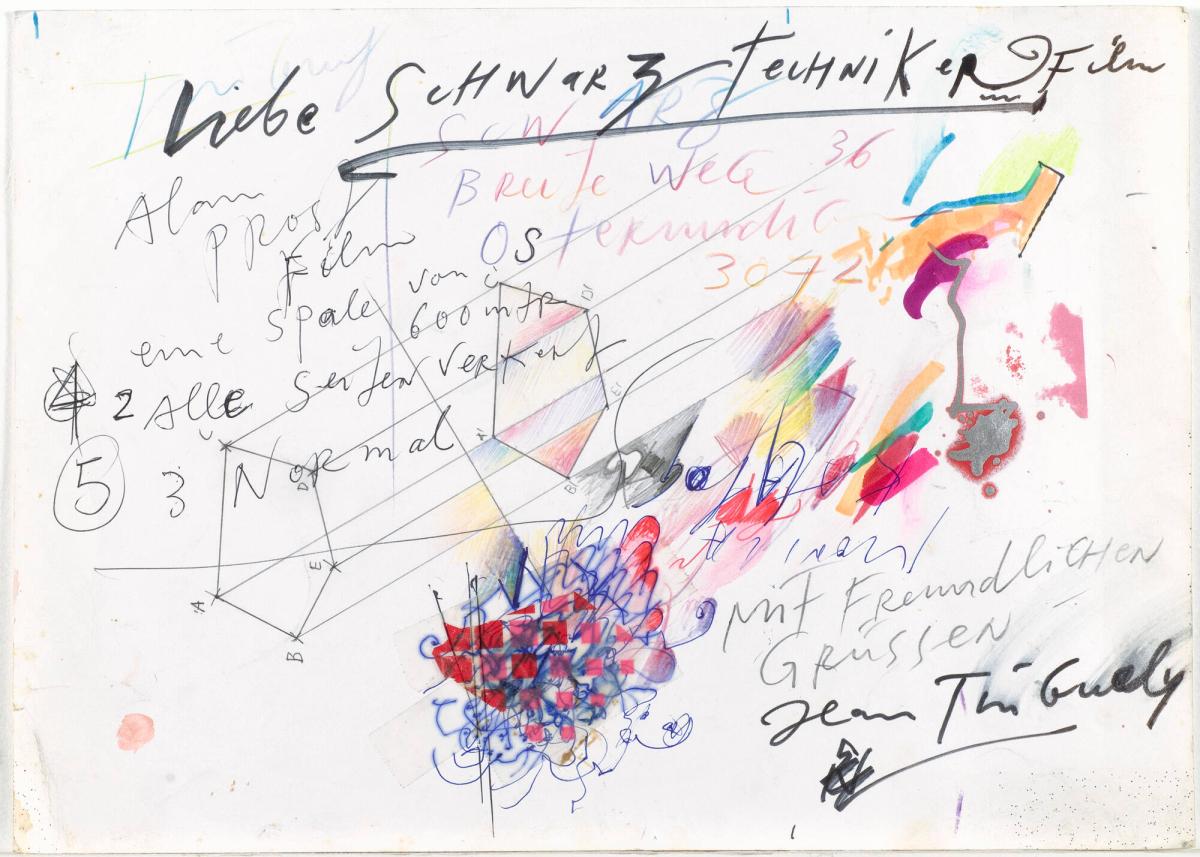 Liebe SCHWARZ TECHNIKER Film
SCHWARZ
Breite Weg 36
Ostermundig
3072
Alam
PPROST
Film
eine Spale von
600 mtr
2 Alle Seiten verkehrt
5 3 Normal
D'
E'
A'
B'
D
E
A
B
MIT FREUNDLICHEN
GRÜSSEN
Jean Tinguely